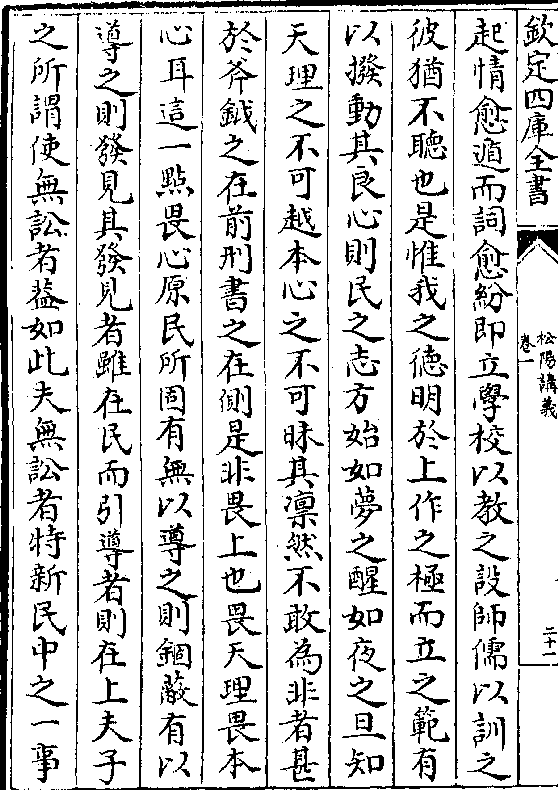 欽定四庫全書
松陽講義
卷一
二十一
起情愈遁而詞愈紛即立學校以教之設師儒以訓之
彼猶不聽也是惟我之德明於上作之極而立之範有
以撥動其良心則民之志方始如夢之醒如夜之旦知
天理之不可越本心之不可昧其凛然不敢為非者甚
於斧鉞之在前刑書之在側是非畏上也畏天理畏本
心耳這一點畏心原民所固有無以導之則錮蔽有以
導之則發見其發見者雖在民而引導者則在上夫子
之所謂使無訟者葢如此夫無訟者特新民中之一事